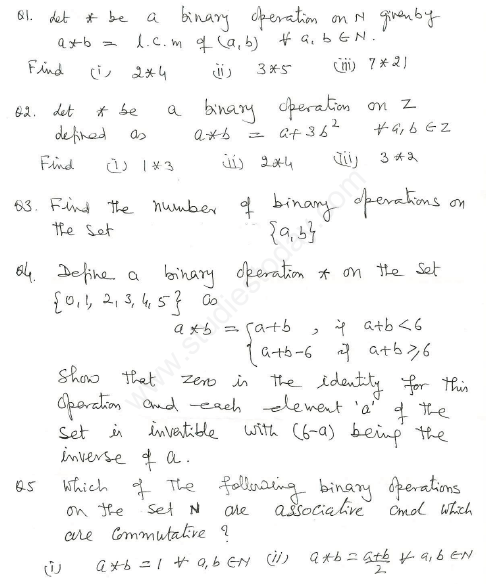 Q1. Let * be a binary operation on N given by
a*b = l.c.m of (a,b) ∀ a, b ∈ N.
Find (i) 2*4 (ii) 3*5 (iii) 7*21
Q2. Let * be a binary operation on Z
defined as a*b = a+3b² ∀ a,b ∈ Z
Find (i) 1*3 (ii) 2*4 (iii) 3*2
Q3. Find the number of binary operations on
the set {a,b}
Q4. Define a binary operation * on the set
{0,1, 2, 3, 4, 5} as
a*b = { a+b , if a+b<6
a+b-6 if a+b≥6
Show that zero is the identity for this
operation and each element 'a' of the
set is invertible with (6-a) being the
inverse of a.
Q5 Which of the following binary operations
on the set N are associative and which
are commutative ?
(i) a*b = 1 ∀ a,b ∈ N (ii) a*b = a+b/2 ∀ a, b ∈ N
www.studiestoday.com